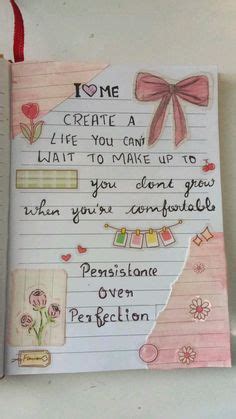 I 💜 ME
CREATE A
LIFE YOU CAN'T
WAIT TO MAKE UP TO
you dont grow
when you're comfortable
Persistance
Over
Perfection